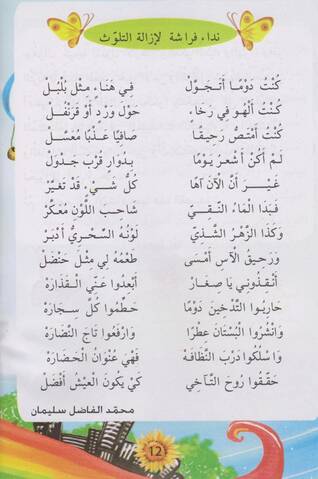 نداء فراشة لإزالة التلوّث
كُنْتُ دَوْمًا أَتَجَوَّلْ فِي هَنَاءٍ مِثْلَ بُلْبُلْ
كُنْتُ أَلْهُو فِي رَخَاءٍ حَوْلَ وَرْدٍ أَوْ قَرَنْفُلْ
كُنْتُ أَمْتَصُّ رَحِيقًا صَافِيًا عَذْبًا مُعَسَّلْ
لَمْ أَكُنْ أَشْعُرُ يَوْمًا بِدُوَارٍ قُرْبَ جَدْوَلْ
غَيْرَ أَنَّ الْآنَ آهَا كُلُّ شَيْءٍ قَدْ تَغَيَّرْ
فَبَدَا الْمَاءُ النَّقِيُّ شَاحِبَ اللَّوْنِ مُعَكَّرْ
وَكَذَا الزَّهْرُ الشَّذِيُّ لَوْنُهُ السِّحْرِيُّ أَدْبَرْ
وَرَحِيقُ الْآسِ أَمْسَى طَعْمُهُ لِي مِثْلَ حَنْضَلْ
أَنْقِذُونِي يَا صِغَارُ أَبْعِدُوا عَنِّي الْقَذَارَهْ
حَارِبُوا التَّدْخِينَ دَوْمًا حَطِّمُوا كُلَّ سِجَارَهْ
وَانْشُرُوا الْبُسْتَانَ عِطْرًا وَارْفَعُوا تَاجَ النَّضَارَهْ
وَاسْلُكُوا دَرْبَ النَّظَافَهْ فَهْيَ عُنْوَانُ الْحَضَارَهْ
حَقِّقُوا رُوحَ التَّآخِي كَيْ يَكُونَ الْعَيْشُ أَفْضَلْ
محمّد الفاضل سليمان
12